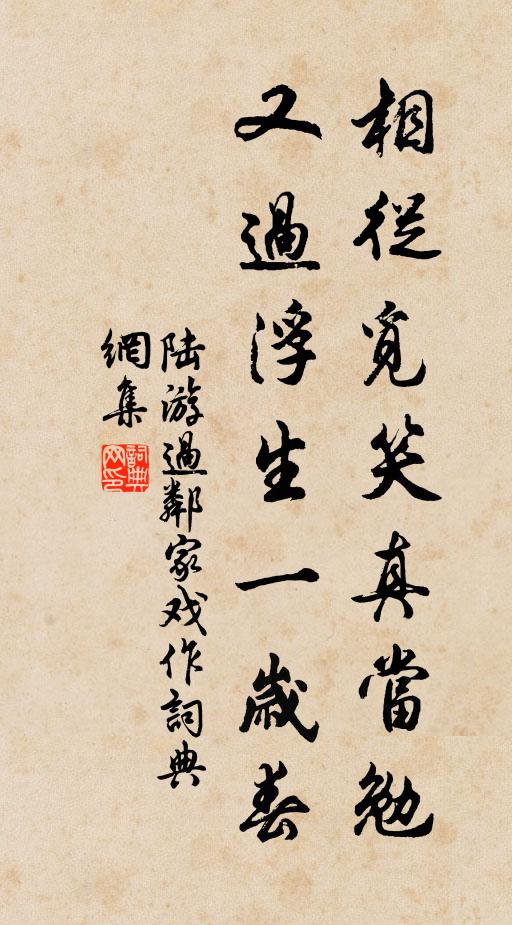 相從覓笑真當勉
又過浮生一歲春
陸游過鄰家戏作詞典
網集
詞典网印